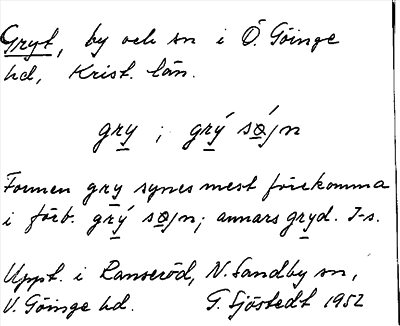 Gryt, by och sn i Ö. Göinge
hd, Krist. län.
gry ; grý sǿjn
Formen gry synes mest förekomma
i förb. grý sǿjn; annars gryd. I-s.
Uppt. i Ranseröd, N. Sandby sn,
V. Göinge hd. G. Sjöstedt 1952